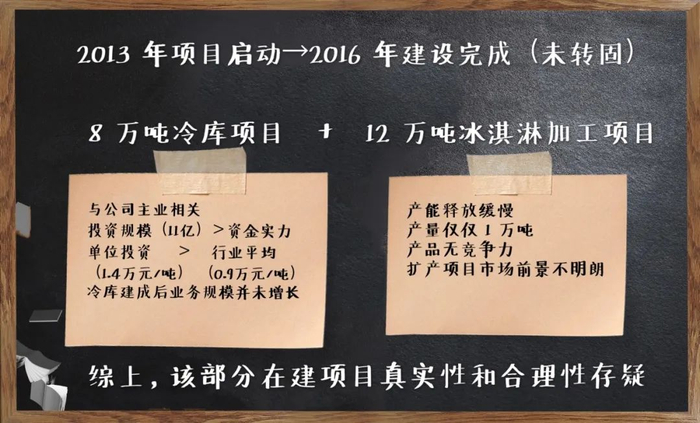 2013 年项目启动→2016 年建设完成（未转固）
8 万吨冷库项目 + 12 万吨冰淇淋加工项目
与公司主业相关
投资规模（11亿）＞资金实力
单位投资 ＞ 行业平均
（1.4万元/吨）（0.9万元/吨）
冷库建成后业务规模并未增长
产能释放缓慢
产量仅仅 1 万吨
产品无竞争力
扩产项目市场前景不明朗
综上，该部分在建项目真实性和合理性存疑